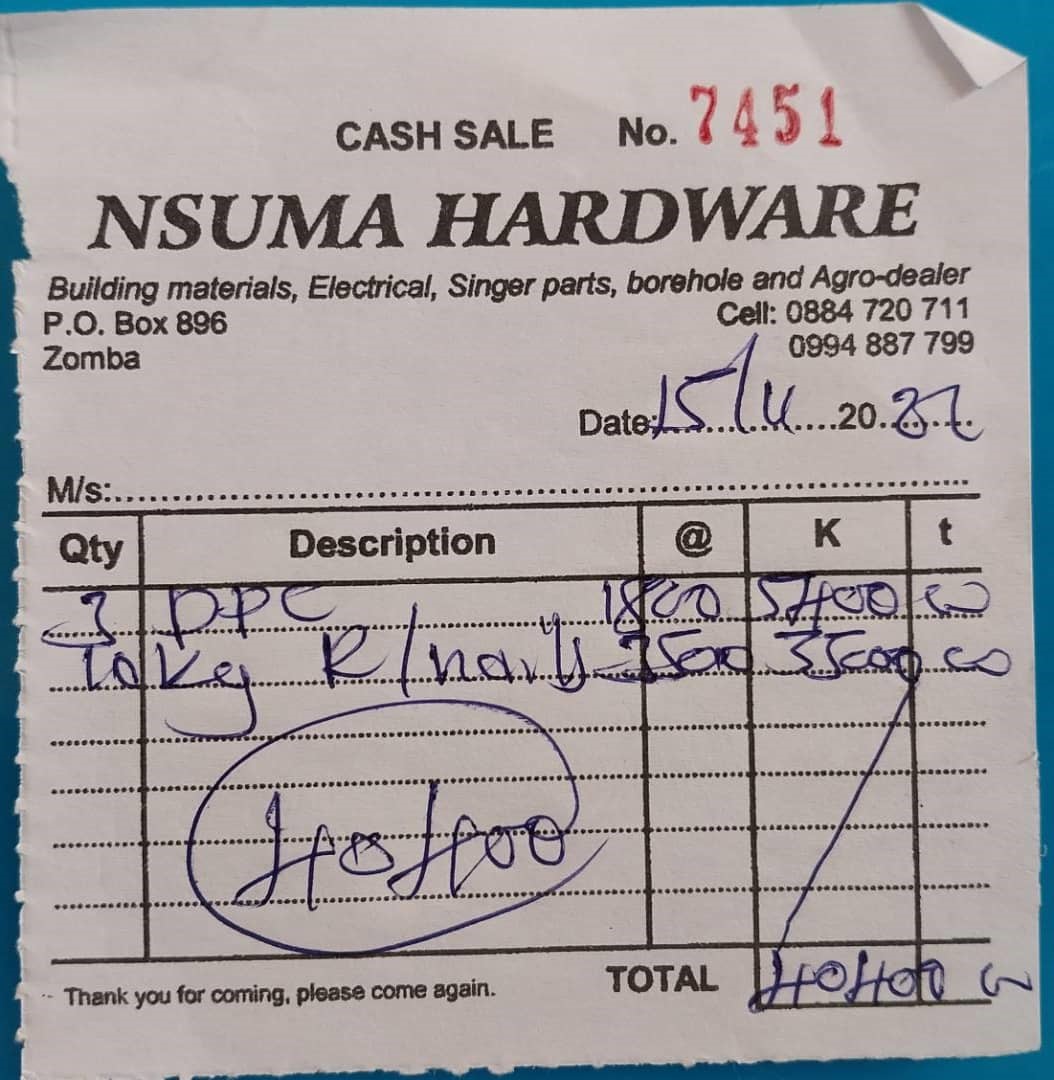 CASH SALE No. 7451
NSUMA HARDWARE
Building materials, Electrical, Singer parts, borehole and Agro-dealer
P.O. Box 896 Cell: 0884 720 711
Zomba 0994 887 799
Date: 15/ 20
M/s:
Qty Description @ K t
3 DPC 1800 5400 00
10 Kg R/nails 3500 35000 00
40400
TOTAL 40400 00
Thank you for coming, please come again.